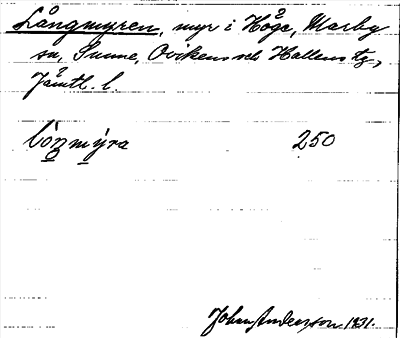 Långmyren, myr i Höge, Marby
sn, Sunne, Oviken och Hallens tg,
Jämtl. l.
lòŋmýra 250
Johan Andersson 1931.